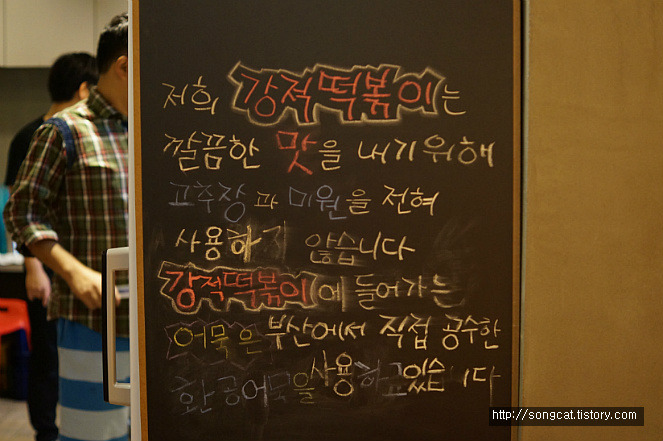 저희 강적떡볶이는
깔끔한 맛을 내기위해
고추장과 미원을 전혀
사용하지 않습니다
강적떡볶이에 들어가는
어묵은 부산에서 직접 공수한
환공어묵을 사용하고있습니다
http://songcat.tistory.com